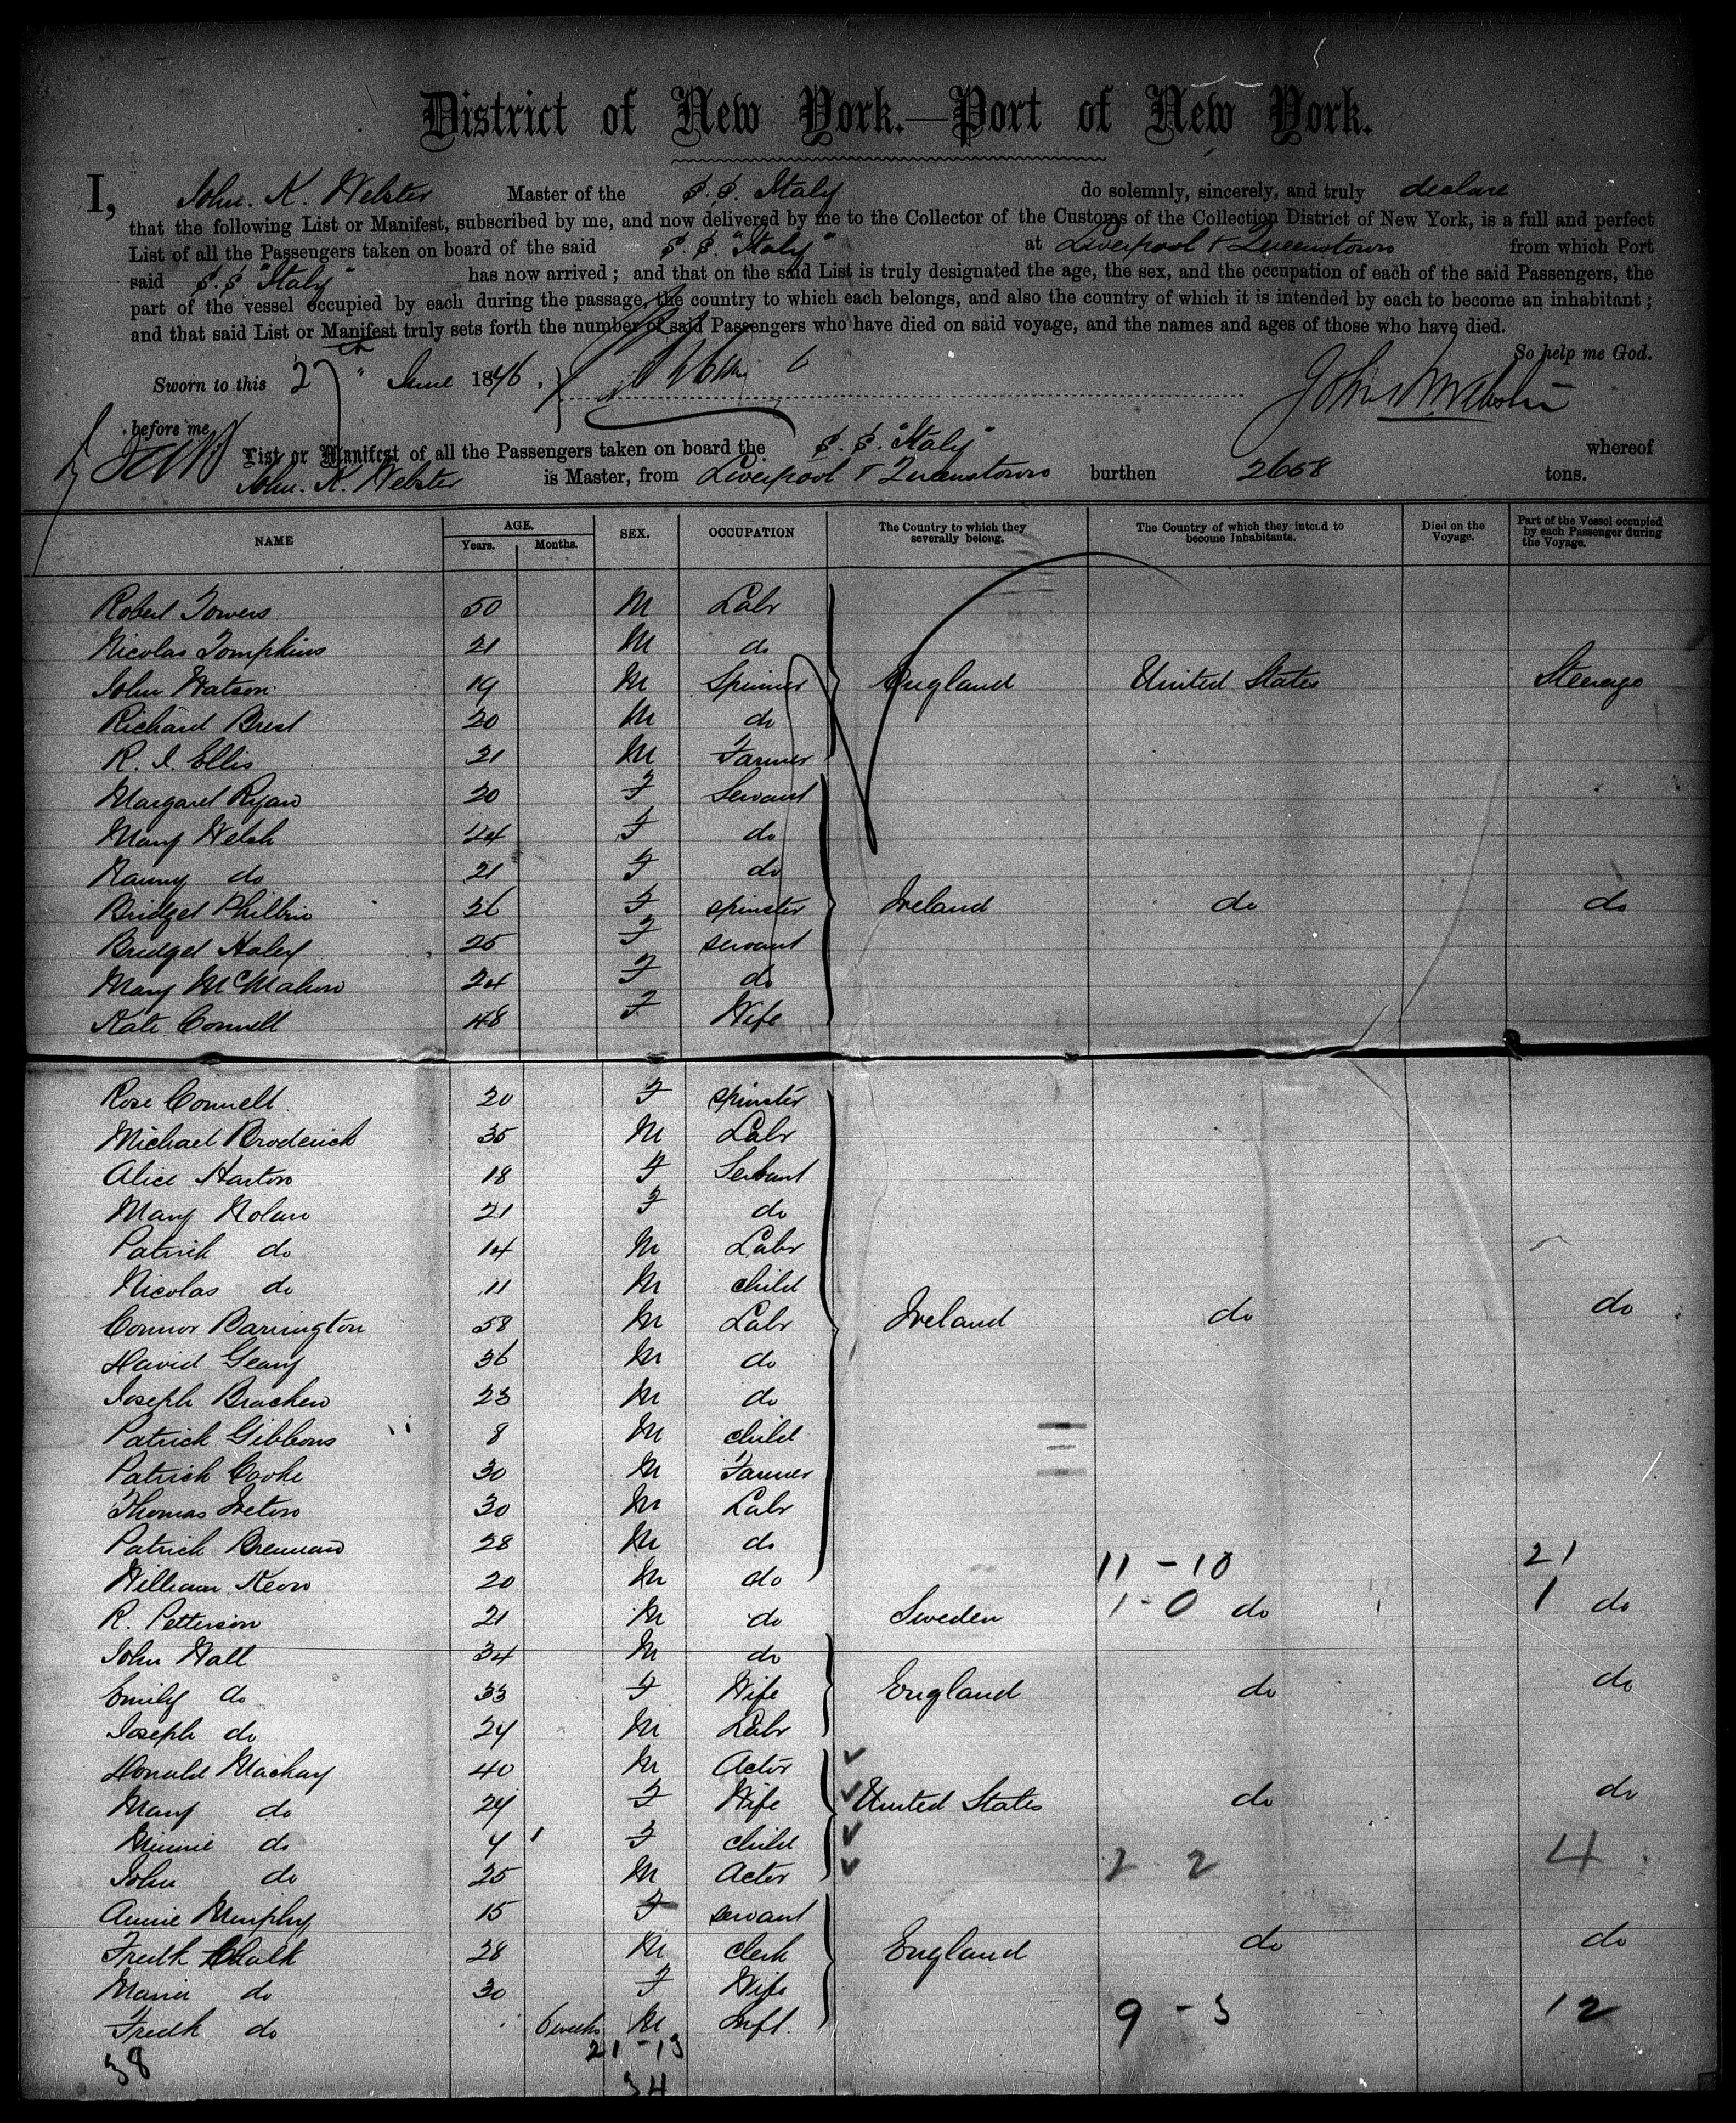 District of New York.—Port of New York.
I, John. K. Webster Master of the S. S. Italy do solemnly, sincerely, and truly declare
that the following List or Manifest, subscribed by me, and now delivered by me to the Collector of the Customs of the Collection District of New York, is a full and perfect
List of all the Passengers taken on board of the said S. S. "Italy" at Liverpool & Queenstown from which Port
said S. S "Italy" has now arrived; and that on the said List is truly designated the age, the sex, and the occupation of each of the said Passengers, the
part of the vessel occupied by each during the passage, the country to which each belongs, and also the country of which it is intended by each to become an inhabitant;
and that said List or Manifest truly sets forth the number of said Passengers who have died on said voyage, and the names and ages of those who have died.
So help me God.
Sworn to this 27th June 18 John Webster
before me
List or Manifest of all the Passengers taken on board the S. S. "Italy" whereof
John. K. Webster is Master, from Liverpool & Queenstown burthen 2658 tons.
NAME AGE. Years. Months. SEX. OCCUPATION The Country to which they severally belong. The Country of which they intend to become Inhabitants. Died on the Voyage. Part of the Vessel occupied by each Passenger during the Voyage.
Robert Towers 50 M Labr
Nicolas Tompkins 21 M do
John Watson 19 M Spinner England United States Steerage
Richard Brest 20 M do
R. I. Ellis 21 M Farmer
Margaret Ryan 20 F Servant
Mary Welsh 24 F do
Nanny do 21 F do
Bridget Philbin 26 F spinster Ireland do do
Bridget Haley 25 F servant
Mary McMahon 24 F do
Kate Connell 48 F Wife
Rose Connell 20 F spinster
Michael Broderick 35 M Labr
Alice Harton 18 F Servant
Mary Nolan 21 F do
Patrick do 14 M Labr
Nicolas do 11 M child
Connor Barrington 58 M Labr Ireland do do
David Geany 36 M do
Joseph Bracken 23 M do
Patrick Gibbons 8 M child
Patrick Cooke 30 M Farmer
Thomas Ireton 30 M Labr
Patrick Brennan 28 M do 11 - 10 21
William Keon 20 M do
R. Petterson 21 M do Sweden 1-0 do 1 do
John Hall 34 M do
Emily do 33 F Wife England do do
Joseph do 24 M Labr
Donald Mackay 40 M Actor
Mary do 24 F Wife United States do do
Minnie do 4 F child
John do 25 M Actor 2 2 4
Annie Murphy 15 F servant
Fredk Chalk 28 M clerk England do do
Maria do 30 F Wife
Fredk do 6 weeks M Inft. 9 - 3 12
38 21-13
34